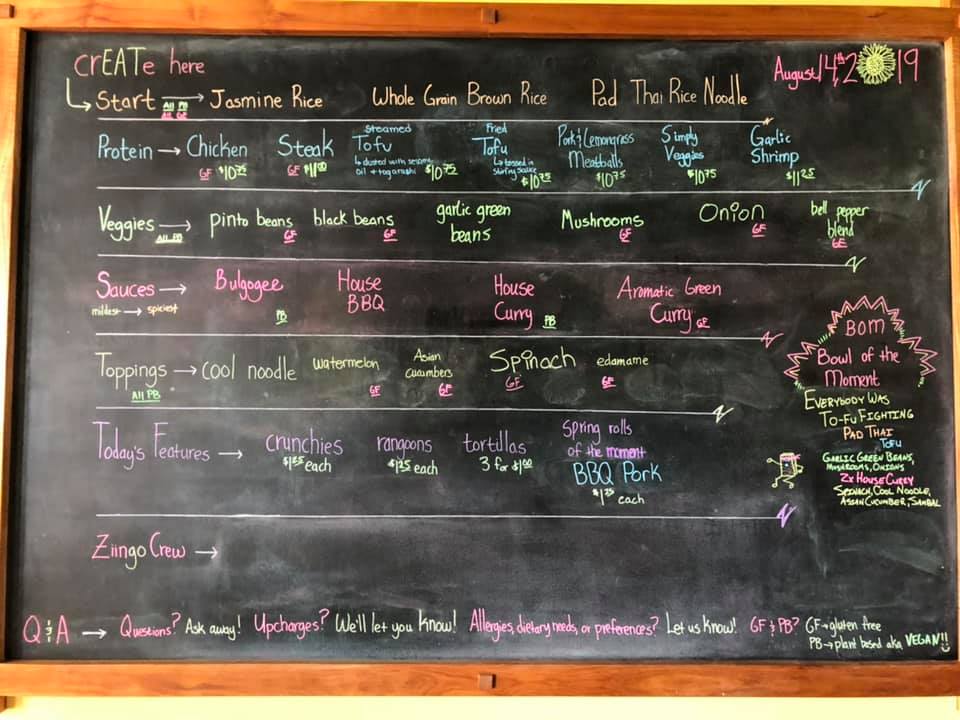 crEATe here
August 14,th 2019
Start → All PB All GF Jasmine Rice Whole Grain Brown Rice Pad Thai Rice Noodle
Protein → Chicken GF $10.75 Steak GF $11.00
Steamed Tofu
↳ dusted with sesame
oil + togarashi $10.75
Fried
Tofu
↳ tossed in
stirfry sauce
$10.75
Pork & Lemongrass
Meatballs
$10.75
Simply
Veggies
$10.75
Garlic
Shrimp
$11.25
Veggies → All PB
pinto beans GF
black beans GF
garlic green
beans
Mushrooms
GF
Onion
GF
bell pepper
blend
GF
Sauces →
mildest → spiciest
Bulgogee
PB
House
BBQ
House
Curry PB
Aromatic Green
Curry GF
Toppings →
All PB
cool noodle
watermelon
GF
Asian
cucumbers
GF
Spinach
GF
edamame
GF
Today's Features →
crunchies
$1.25 each
rangoons
$1.25 each
tortillas
3 for $1.00
Spring rolls
of the moment
BBQ Pork
$1.25
each
BOM
Bowl of the
Moment
Everybody Was
To-Fu Fighting
Pad Thai
Tofu
Garlic Green Beans,
Mushrooms, Onions
2x House Curry
Spinach, Cool Noodle,
Asian Cucumber, Sambal
Ziingo Crew →
Q & A → Questions? Ask away! Upcharges? We'll let you know! Allergies, dietary needs, or preferences? Let us know! GF & PB? GF→gluten free
PB→plant based aka VEGAN!!